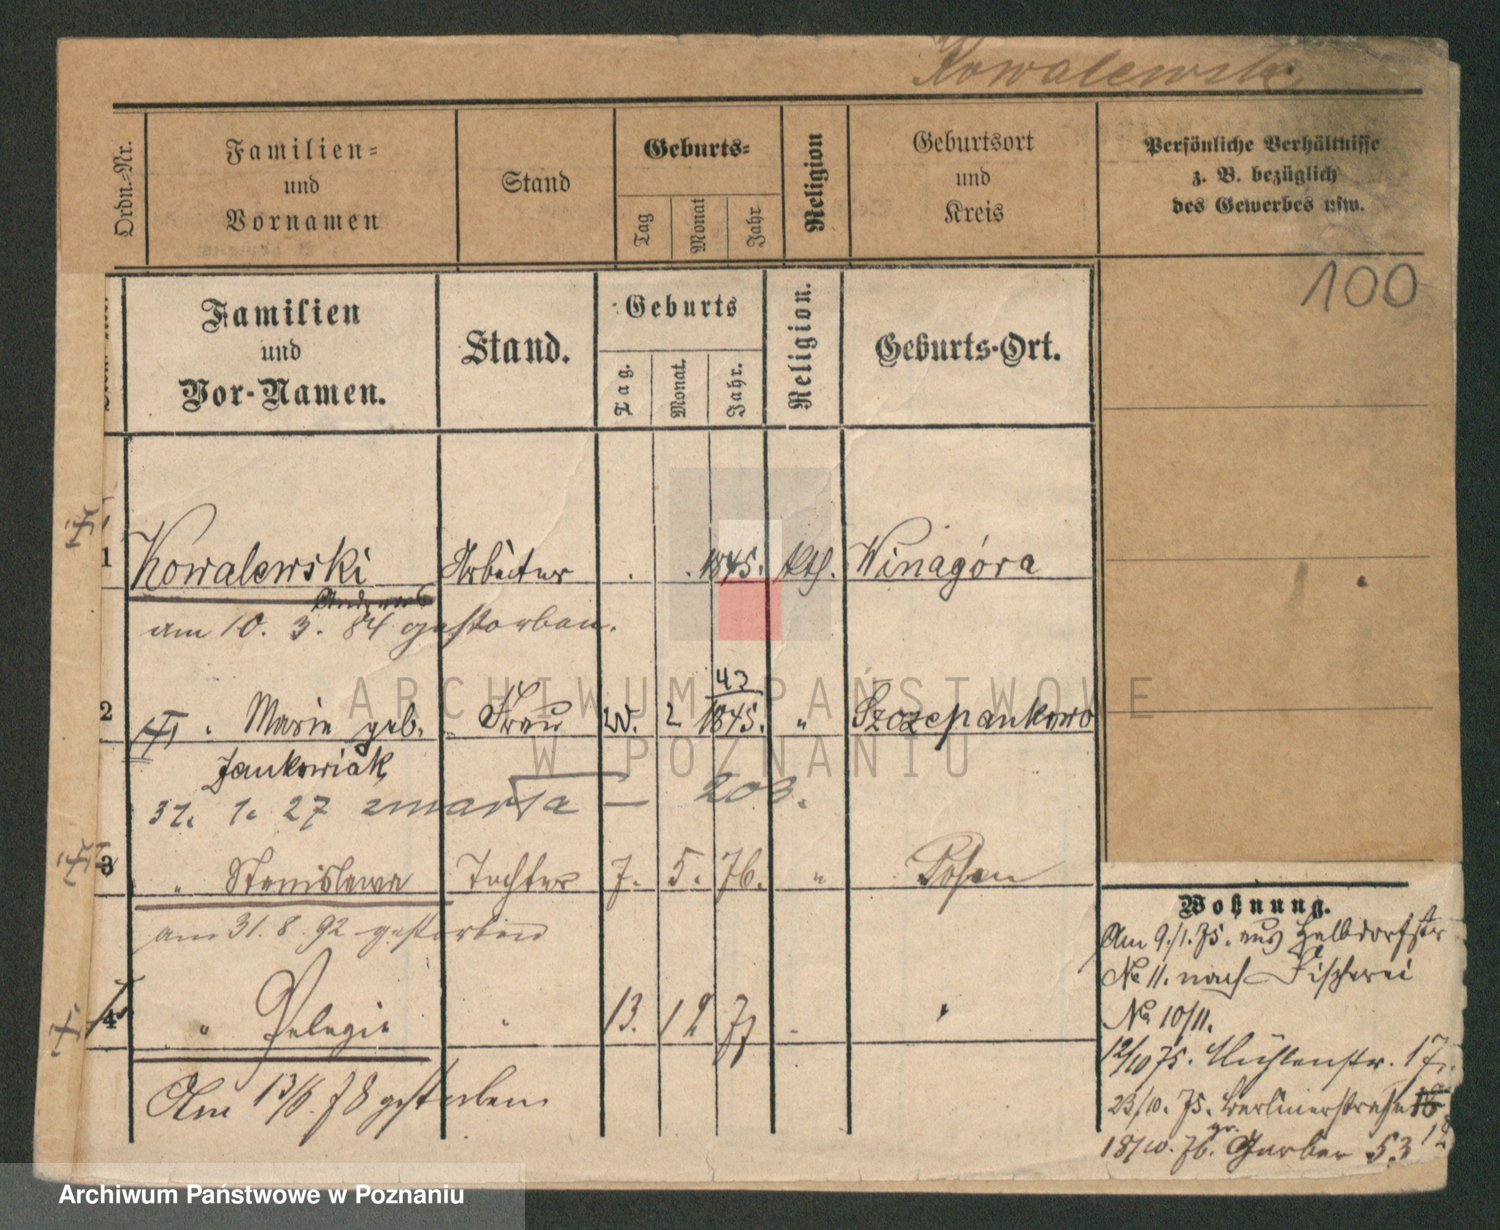 Kowalewski
Ordn.-Nr.
Familien-
und
Vornamen
Stand
Geburts-
Tag
Monat
Jahr
Religion
Geburtsort
und
Kreis
Persönliche Verhältnisse
z. B. bezüglich
des Gewerbes usw.
100
Familien
und
Vor-Namen.
Stand.
Geburts
Tag.
Monat.
Jahr.
Religion.
Geburts-Ort.
1 Kowalewski Arbeiter . . 1845. kth. Winagóra
Andreas
am 10. 3. 84 gestorben.
43
2 " Marie geb. Frau 20. 2 1845. " Szczepankowo
Jankowiak
31. 1. 27 zmarła — 203.
3 " Stanislawa Tochter 7. 5. 76. " Posen
am 31. 8. 92 gestorben
4 " Pelagia " 13. 12 77 "
Am 13/6. 78 gestorben
Wohnung.
Am 9./1. 75. aus Halbdorfstr
No 11. nach Fischerei
No 10/11.
12/10 75. Mühlenstr. 17.
23/10. 75. Berlinerstraße 16
12
18/10. 76. gr. Gerber 53
ARCHIWUM PAŃSTWOWE
W POZNANIU
Archiwum Państwowe w Poznaniu